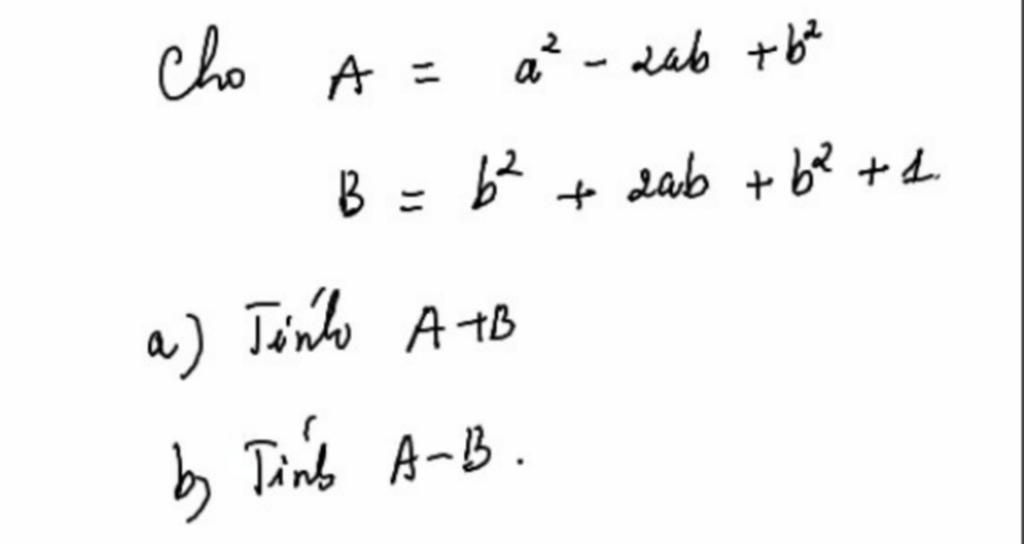 Cho A = a² - 2ab + b²
B = b² + 2ab + b² + 1.
a) Tính A+B
b) Tính A-B.